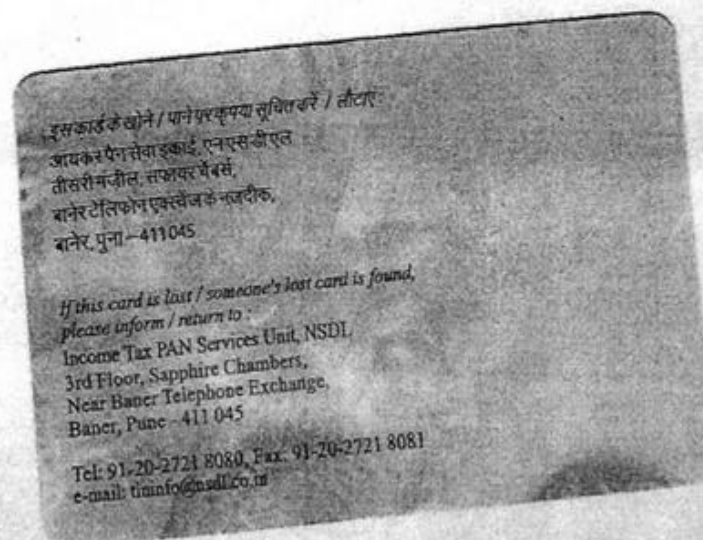 इस कार्ड के खोने / पाने पर कृपया सूचित करें / लौटाएं :
आयकर पैन सेवा इकाई, एनएसडीएल
तीसरी मंज़ील, सफायर चेंबर्स,
बानेर टेलिफोन एक्स्चेंज के नज़दीक,
बानेर, पुना – 411045
If this card is lost / someone's lost card is found,
please inform / return to :
Income Tax PAN Services Unit, NSDL
3rd Floor, Sapphire Chambers,
Near Baner Telephone Exchange,
Baner, Pune - 411 045
Tel: 91-20-2721 8080, Fax: 91-20-2721 8081
e-mail: tininfo@nsdl.co.in